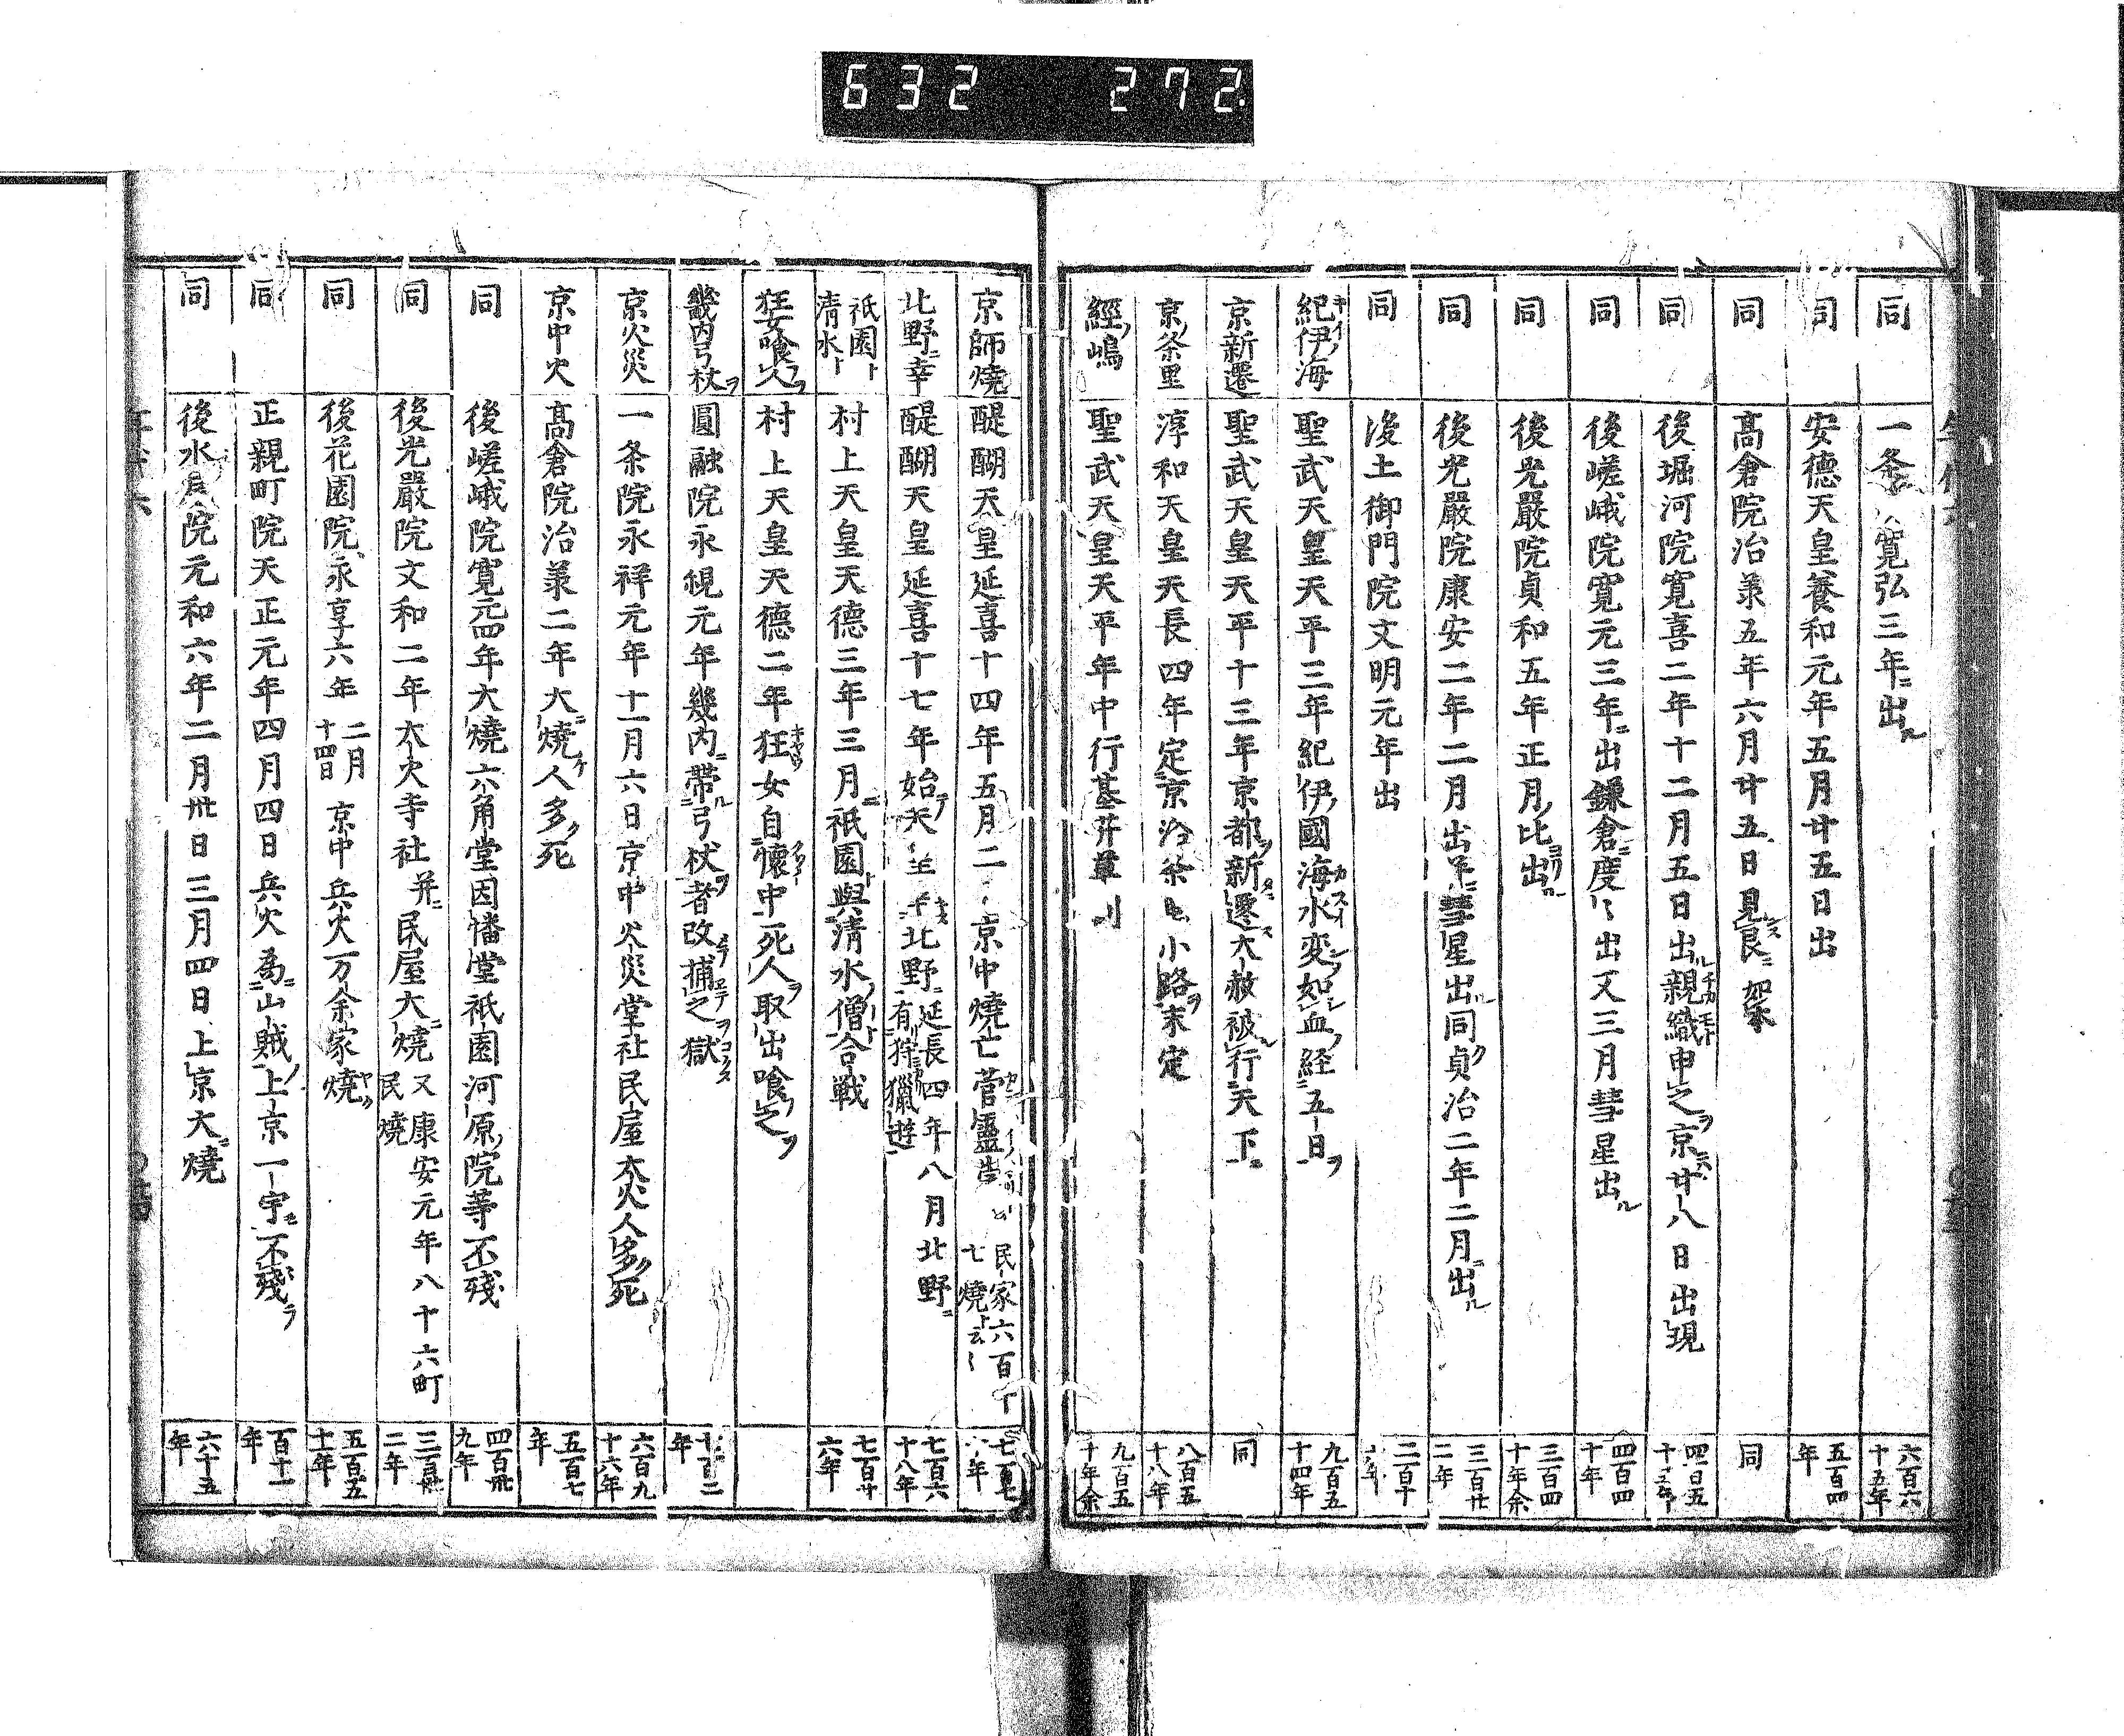 632 272
同 一条 寛弘三年ニ出ル 六百六十五年
同 安德天皇養和元年五月廿五日出 五百四年
同 髙倉院治承五年六月廿五日見艮ニ 同
同 後堀河院寛喜二年十二月五日出ル親織申之京廿八日出現
同 後嵯峨院寛元三年ニ出鎌倉ニ度〻出又三月彗星出ル 四百四十年
同 後光嚴院貞和五年正月比出 三百四十年余
同 後光嚴院康安二年二月出 彗星出同貞治二年二月ニ出ル 三百廿二年
同 後土御門院文明元年出 二百十年
紀伊海 聖武天皇天平三年紀伊國海水変如血経五日 九百五十四年
京新遷 聖武天皇天平十三年京都新遷大赦被行天下ニ 同
京条里 淳和天皇天長四年定京 小路末定 八百五十八年
經嶋 聖武天皇天平年中行基 九百五十年余
京師焼 醍醐天皇延喜十四年五月二 京中焼亡菅靈告 民家六百十七焼ト云〻
北野幸 醍醐天皇延喜十七年始 北野ニ延長四年八月北野ニ有狩獵遊 七百六十八年
祇園 清水 村上天皇天德三年三月ニ祇園與清水僧合戦 七百廿六年
狂女喰人 村上天皇天德二年狂女自懐中死人取出喰之
畿内弓杖 圓融院永観元年幾内ニ帶弓杖者改捕之獄
京火災 一条院永祥元年十一月六日京中火災堂社民屋大火人多死 六百九十六年
京中火 髙倉院治承二年大ニ焼人多死 五百七年
同 後嵯峨院寛元四年大焼六角堂因幡堂祇園河原院等不残 四百卅九年
同 後光嚴院文和二年大火寺社并ニ民屋大ニ焼又康安元年八十六町民焼 三百卅二年
同 後花園院永享六年二月十四日京中兵火一万余家焼 五百五十一年
同 正親町院天正元年四月四日兵火為山賊上京一宇不残 百十一年
同 後水尾院元和六年二月卅日三月四日上京大ニ焼 六十五年